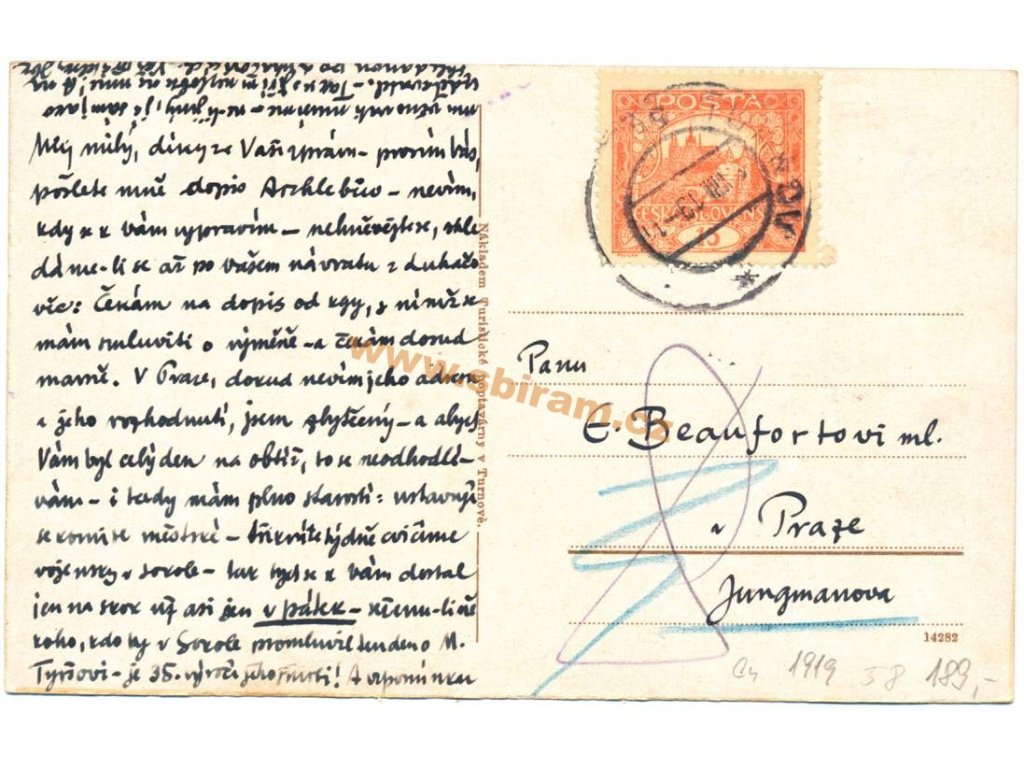 Můj milý, díky za Vaši zprávu – prosím Vás,
pošlete mně dopis Archlebův – nevím,
kdy se k Vám vypravím – nehněvejte se, shle
dáme-li se až po vašem návratu z Luhačo
vic: Čekám na dopis od                s nímž se
mám smluviti o výměně – a čekám dosud
marně. V Praze, dokud nevím jeho adresu
a jeho rozhodnutí, jsem zbytečný – a abych
Vám byl celý den na obtíž, to se neodhodlá-
vám – i tady mám plno starostí: ustavuje
se komise městská – třikráte týdně cvičíme
vojensky v Sokole – tak bych se k Vám dostal
jen na skok už asi jen v pátek –
koho, kdo by v Sokole promluvil             o M.
Tyršovi – je 35. výročí jeho smrti! A vzpomínku
Nákladem Turistické poptavárny v Turnově.
POŠTA
ČESKOSLOVENSKÁ
15
Panu
E. Beaufortovi ml.
v Praze
Jungmanova
14282
1919 58 189,-
www.sbiram.cz